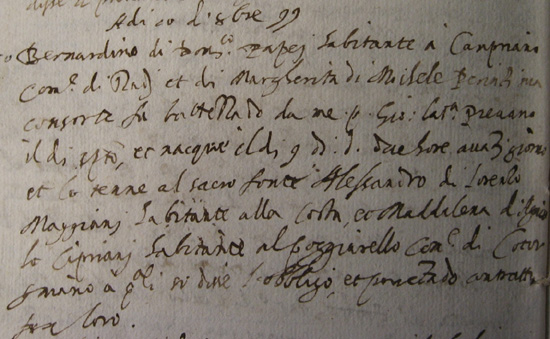 Adi 10 d' 8bre 99
Bernardino di Dom.co Papej habitante a Canpriano
com.e di et di Margherita di Michele sua
consorte fu battezzato da me p. Gio: bat.a Pievano
il di sp.to, et nacque il di 9 di d. due hore avanzi giorno
et lo tenne al sacro fonte Alessandro di Lorenzo
Maggianj habitante alla Costa, et Maddalena d'
lo Ciprianj habitante al Poggiarello com.e di
a q.li si disse l'obbligo, et parentado contratto
fra loro.